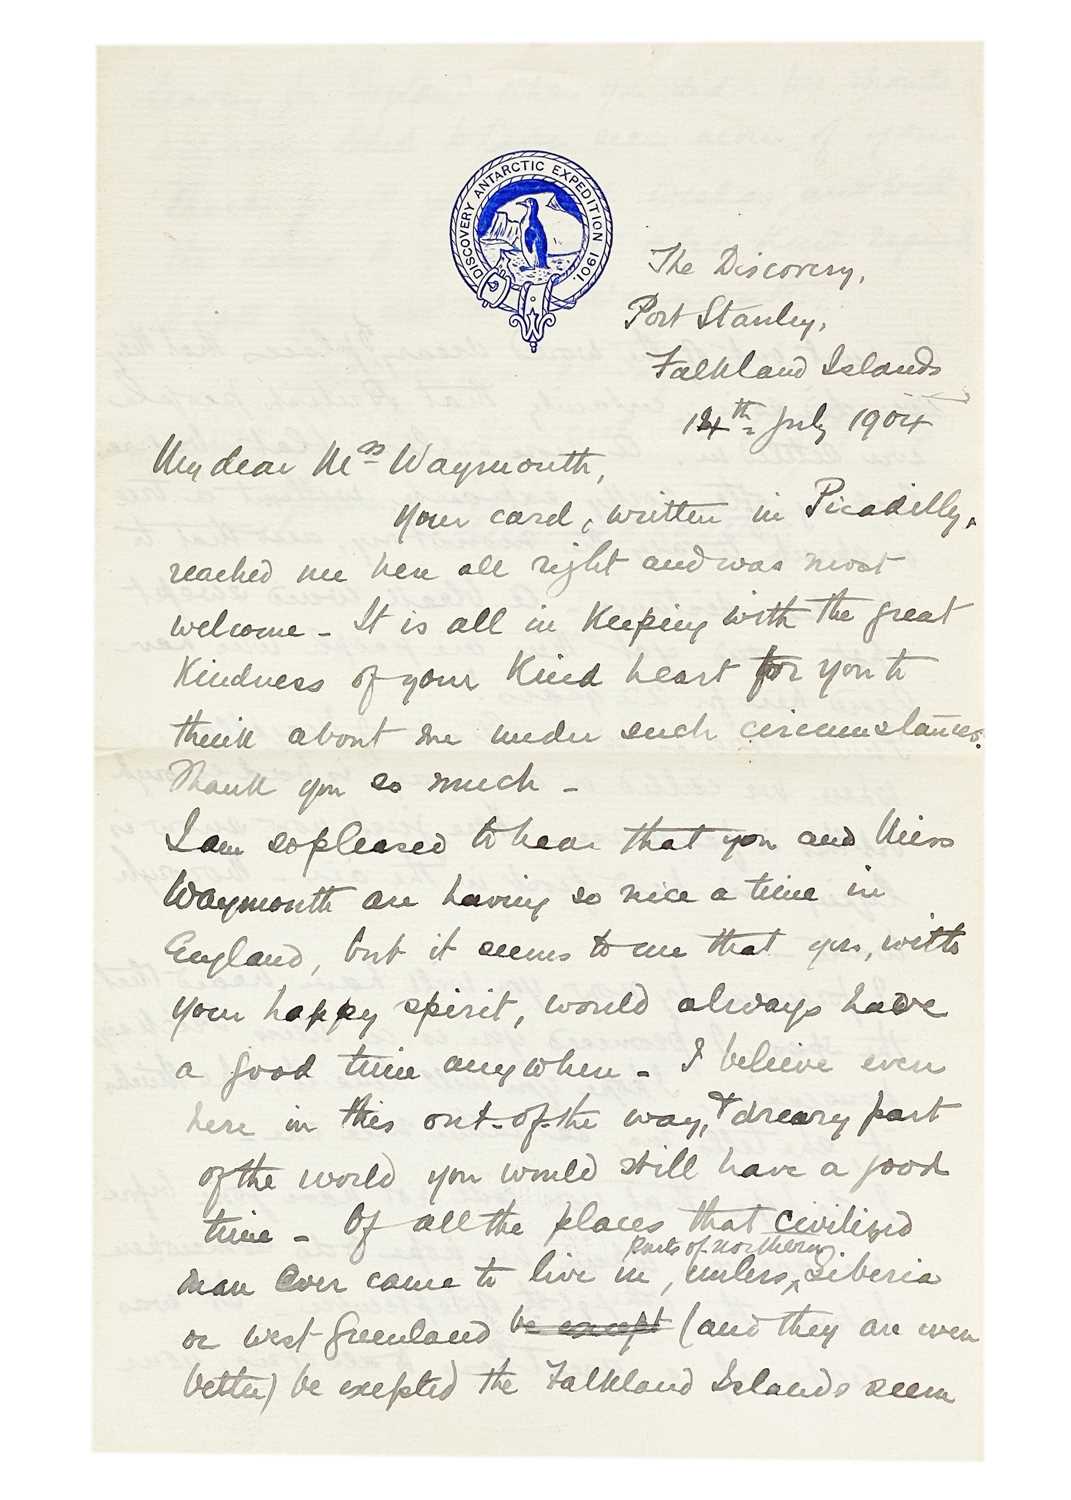 DISCOVERY ANTARCTIC EXPEDITION 1901.
The Discovery,
Port Stanley,
Falkland Islands
14th July 1904
My dear Mrs Waymouth,
Your card, written in Picadilly,
reached me here all right and was most
welcome - It is all in keeping with the great
Kindness of your Kind heart for you to
think about me under such circumstances.
Thank you so much -
I am so pleased to hear that you and Miss
Waymouth are having so nice a time in
England, but it seems to me that you, with
your happy spirit, would always have
a good time anywhere - I believe even
here in this out-of-the way, & dreary part
of the world you would still have a good
time - Of all the places that civilized
parts of northern
man ever came to live in, unless Siberia
or west Greenland be except (and they are even
better) be exepted the Falkland Islands seem